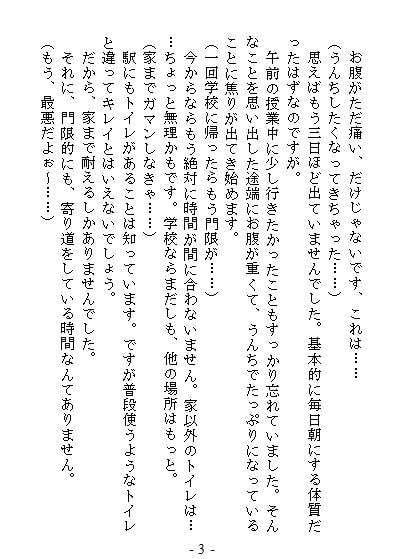 お腹がただ痛い、だけじゃないです、これは……
（うんちしたくなってきちゃった……）
思えばもう三日ほど出ていませんでした。基本的に毎日朝にする体質だ
ったはずなのですが。
午前の授業中に少し行きたかったこともすっかり忘れていました。そん
なことを思い出した途端にお腹が重くて、うんちでたっぷりになっている
ことに焦りが出てき始めます。
（一回学校に帰ったらもう門限が……）
今からならもう絶対に時間が間に合わません。家以外のトイレは…
…ちょっと無理かもです。学校ならまだしも、他の場所はもっと。
（家までガマンしなきゃ……）
駅にもトイレがあることは知っています。ですが普段使うようなトイレ
と違ってキレイとはいえないでしょう。
だから、家まで耐えるしかありませんでした。
それに、門限的にも、寄り道をしている時間なんてありません。
（もう、最悪だよぉ～……）
- 3 -